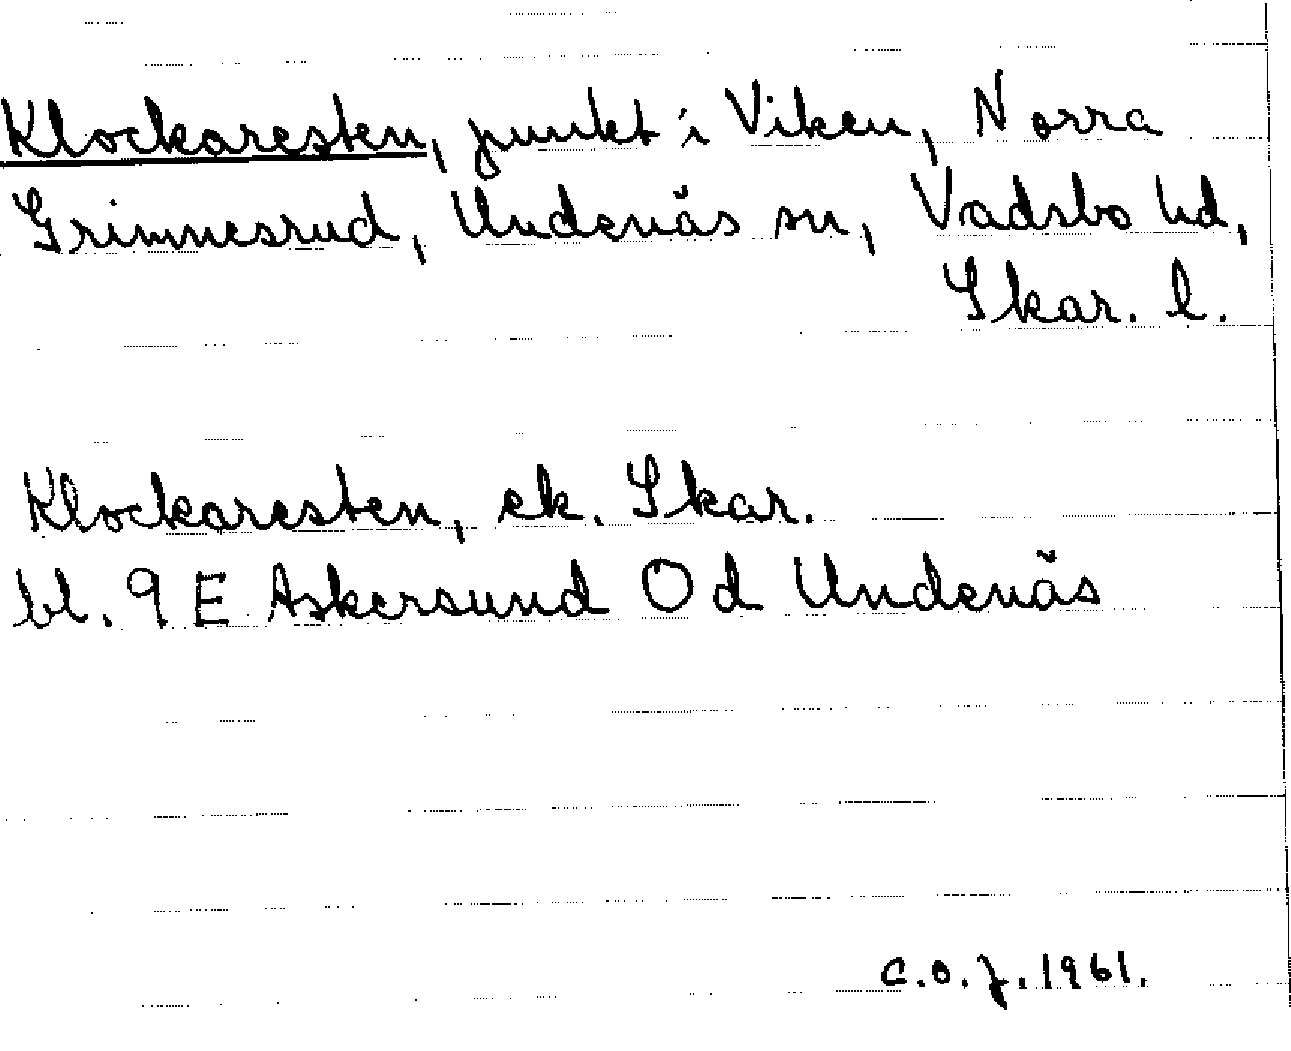 Klockaresten, punkt i Viken, Norra
Grimnesrud, Undenäs sn, Vadsbo hd,
Skar. l.
Klockaresten, ek. Skar.
bl. 9 E Askersund O d Undenäs
C.O.J. 1961.